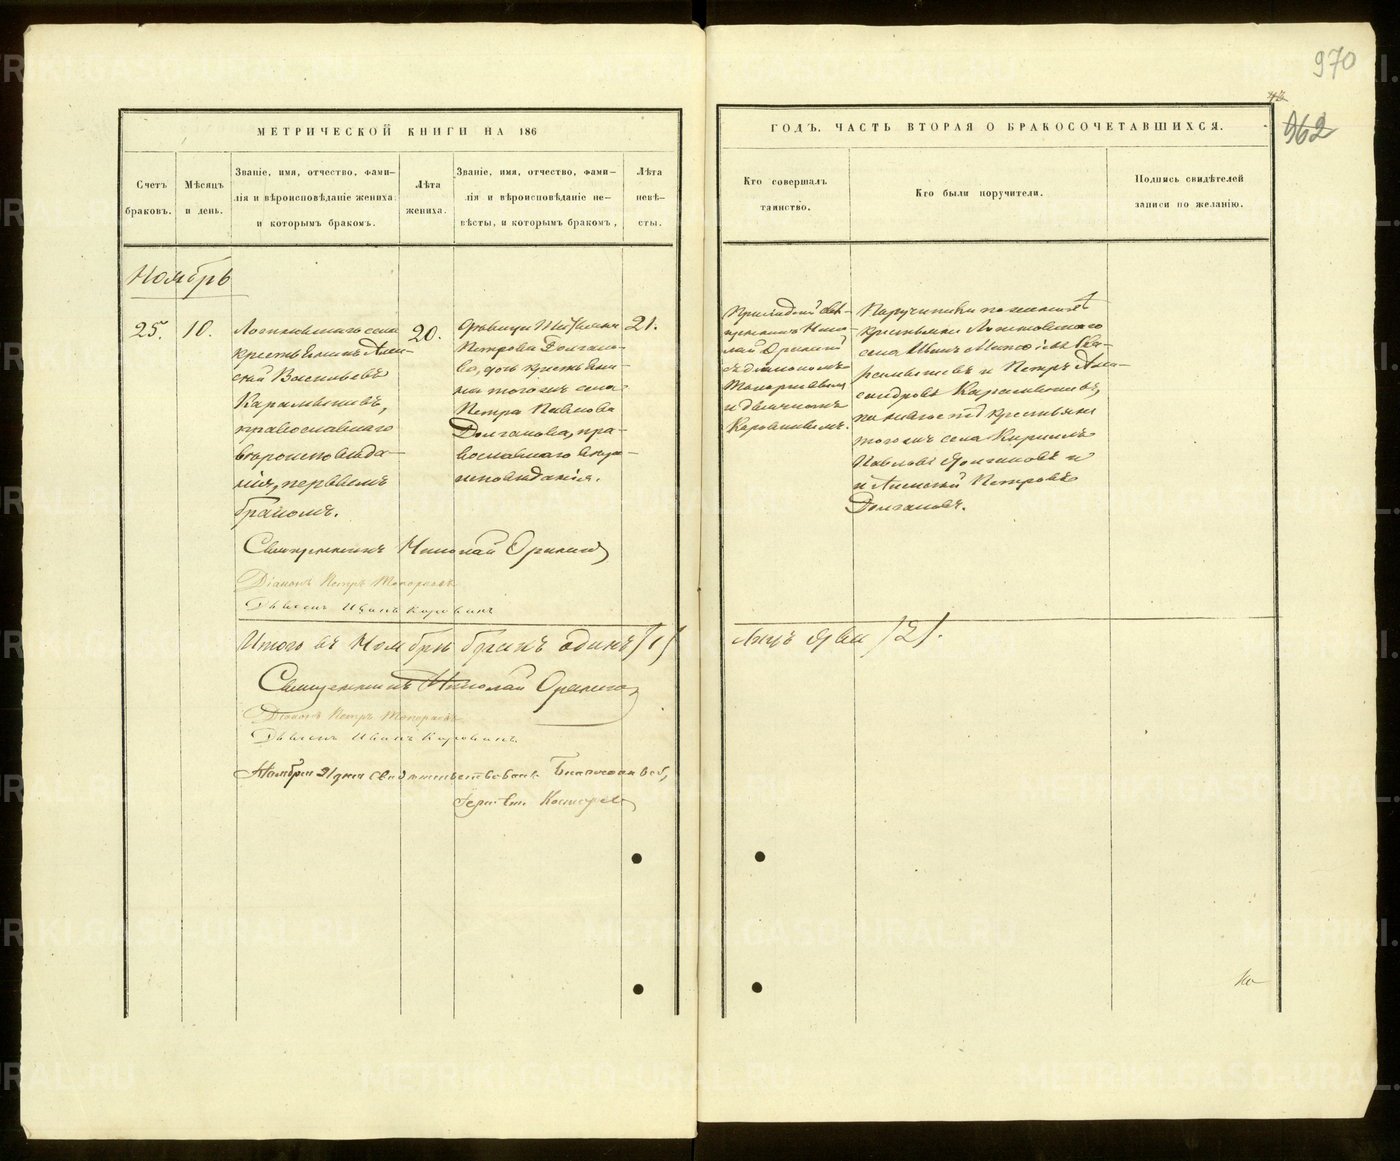 970
962
МЕТРИЧЕСКОЙ КНИГИ НА 186
ГОДЪ. ЧАСТЬ ВТОРАЯ О БРАКОСОЧЕТАВШИХСЯ.
Счетъ
браковъ.
Мѣсяцъ
и день.
Званіе, имя, отчество, фами-
лія и вѣроисповѣданіе жениха,
и которымъ бракомъ.
Лѣта
жениха.
Званіе, имя, отчество, фами-
лія и вѣроисповѣданіе не-
вѣсты, и которымъ бракомъ,
Лѣта
невѣ-
сты.
Кто совершалъ
таинство.
Кто были поручители.
Подпись свидѣтелей
записи по желанію.
Ноябрь
25.
10.
села
крестьянинъ Алек-
сѣй Васильевъ
православнаго
вѣроисповѣда-
нія, первымъ
бракомъ.
20.
дѣвица
Петрова Долгано-
ва, дочь крестьяни-
на того же села
Петра Павлова
Долганова, пра-
вославнаго вѣро-
исповѣданія.
21.
Приходскій свя-
щенникъ Нико-
лай
съ діакономъ
Топорковымъ
и дьячкомъ
Коровинымъ.
Поручители по женихѣ
крестьяне
села Иванъ
и Петръ Алек-
сандровъ
по невѣстѣ крестьяне
того же села Кириллъ
Павловъ Долгановъ и
и Алексѣй Петровъ
Долгановъ.
Священникъ Николай
Діаконъ Петръ Топорковъ
Дьячекъ Иванъ Коровинъ
Итого въ Ноябрѣ бракъ одинъ /1/
Лицъ два /2/.
Священникъ Николай
Діаконъ Петръ Топорковъ
Дьячекъ Иванъ Коровинъ.
Ноября дня свидѣтельствовалъ
METRIKI.GASO-URAL.RU